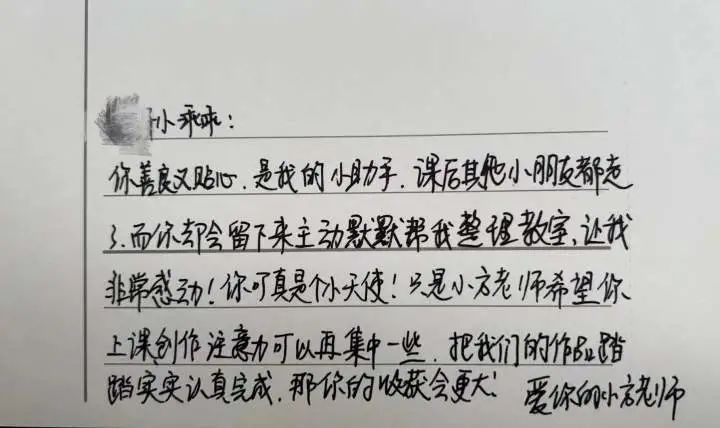 小乖乖：
你善良又贴心，是我的小助手，课后其他小朋友都走
了，而你却会留下来主动默默帮我整理教室，让我
非常感动！你可真是个小天使！只是小方老师希望你
上课创作注意力可以再集中一些，把我们的作品踏
踏实实认真完成，那你的收获会更大！ 爱你的小方老师